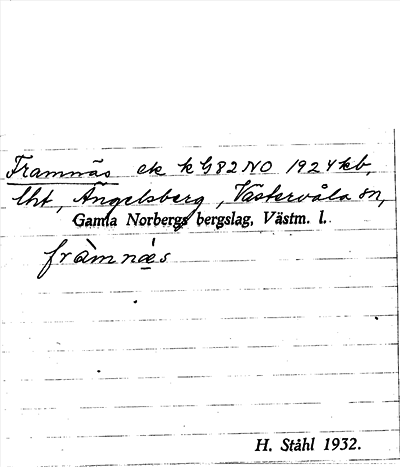 Framnäs ek k G82NO 1924 kb,
lht, Ängelsberg, Västervåla sn,
Gamla Norbergs bergslag, Västm. l.
fràmnä́s
H. Ståhl 1932.